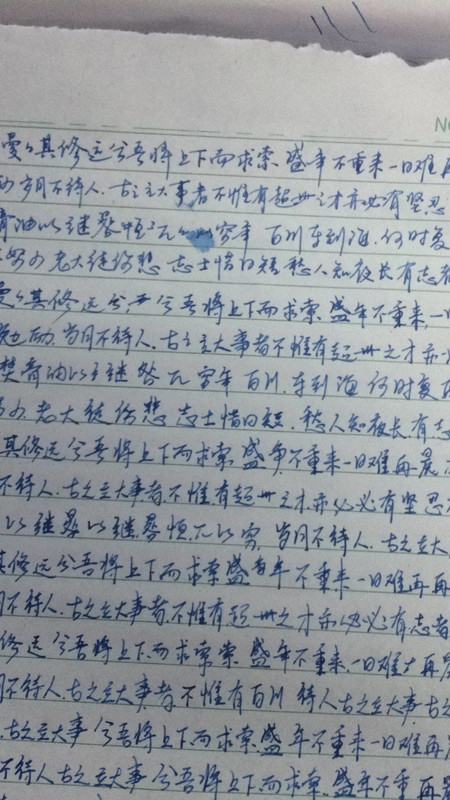 N
曼々其修远兮吾将上下而求索.盛年不重来一日难再
岁月不待人.古之立大事者不惟有超世之才亦必有坚忍
膏油以继晷恒兀兀以穷年 百川东到海.何时复
努力 老大徒伤悲 志士惜日短 愁人知夜长有志者
曼々其修远兮,吾将上下而求索,盛年不重来,一
勉励,岁月不待人,古之立大事者不惟有超世之才亦
焚膏油以继晷兀穷年 百川.东到海 何时复
老大徒伤悲 志士惜日短.愁人知夜长有志
其修远兮吾将上下而求索,盛年不重来一日难再晨
不待人.古之立大事者.不惟有超世之才亦必必有坚忍
以继晷以继晷恒.兀以穷,岁月不待人.古之立大
其修远兮吾将上下而求索盛年不重来一日难再再
月不待人.古之立大事者,不惟有超世之才亦必有志者
修远兮吾将上下.而求索索.盛年不重来,一日难再晨
月不待人.古之立大事者不惟有百川 待人古之立大事.古之
.古之立大事 兮吾将上下.而求索.盛年不重来一日难再晨
不待人古之立大事 兮吾将上下.而求索.盛年不重 再晨